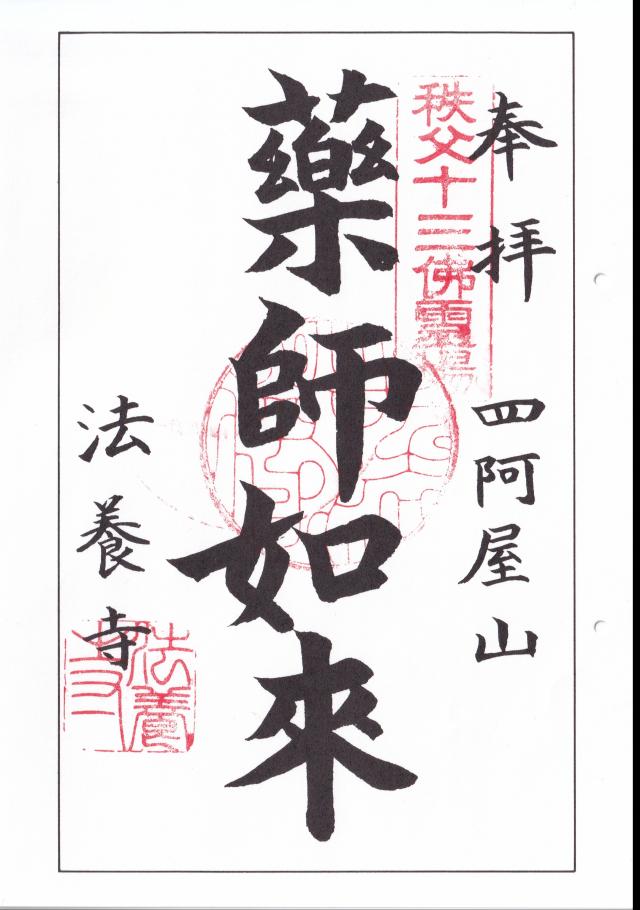 奉拝
四阿屋山
秩父十三佛霊場
藥師如來
法養寺
法養寺